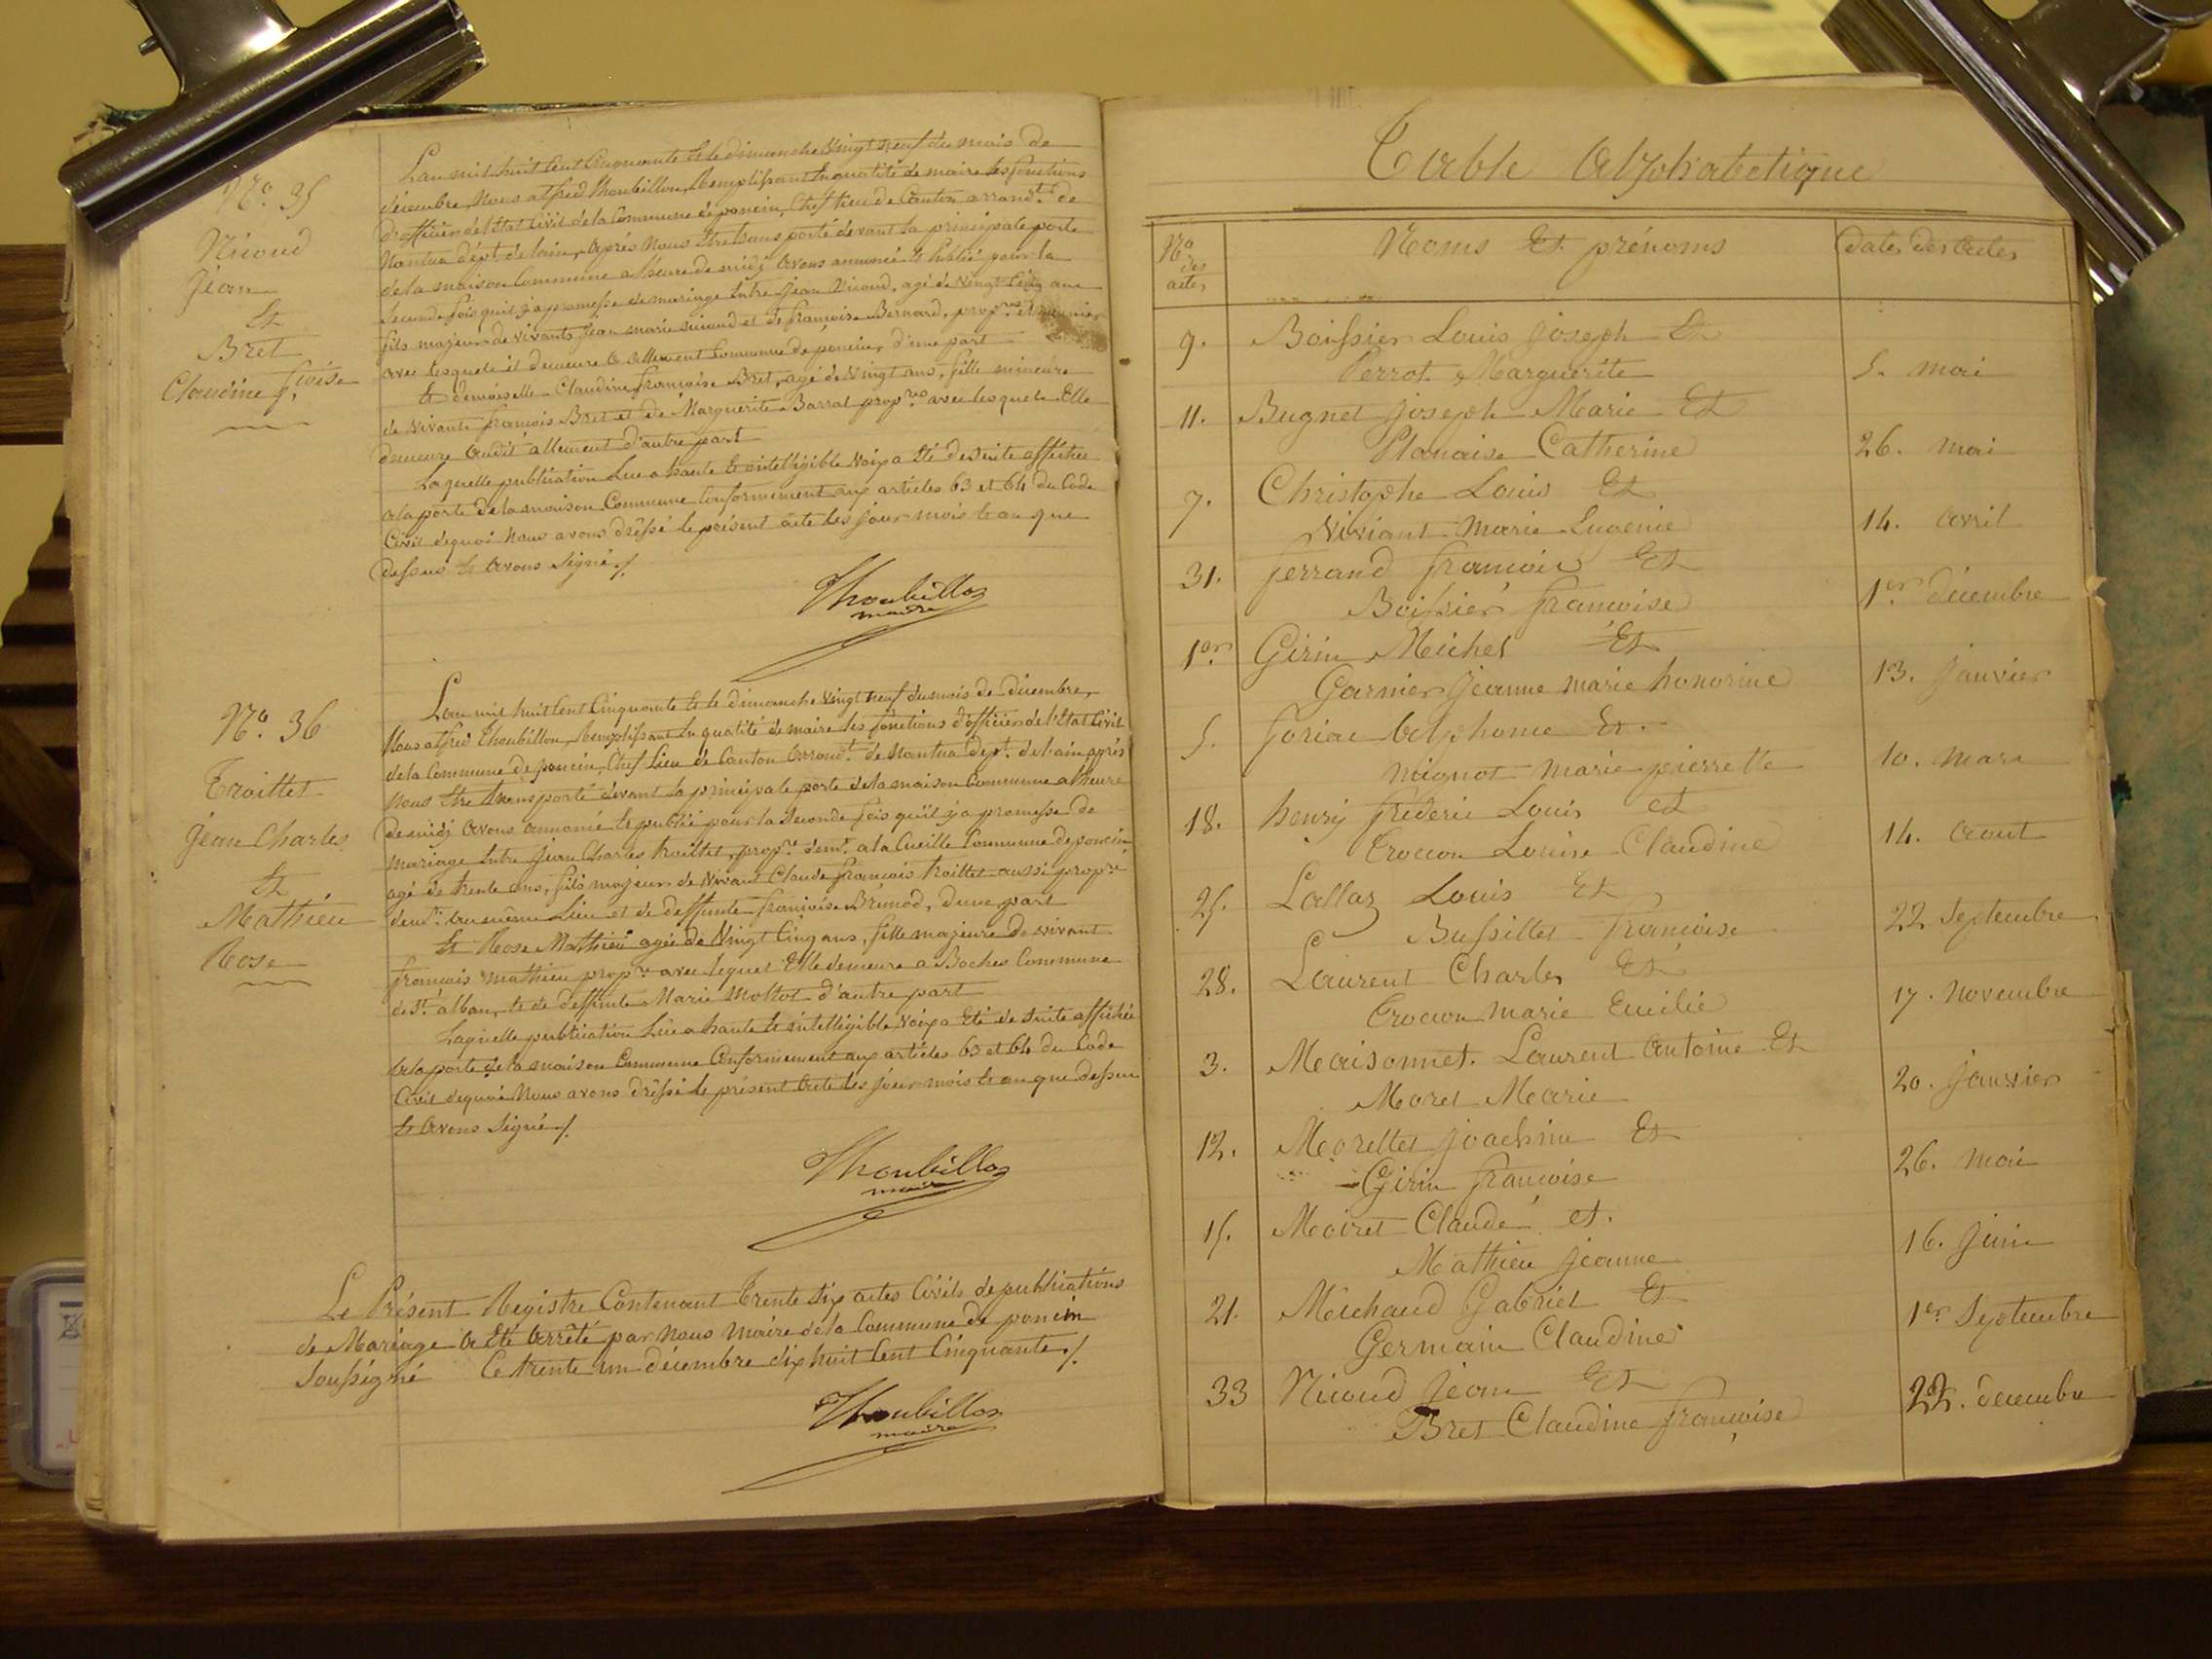 N.o 35
Nicoud
Jean
Et
Bret
Claudine f.çoise
L'an mil huit Cent Cinquante Et le dimanche Vingt neuf du mois de
décembre, Nous alfred Thoubillon, Remplissant En qualité de maire les fonctions
d'officier de l'Etat Civil de la Commune de poncin, Chef lieu de Canton arrond.t de
Nantua dép.t de l'ain, après Nous Etre transporté devant la principale porte
de la maison Commune a l'heure de midj avons annoncé Et Publié pour la
Seconde fois qu'il y a promesse de mariage Entre Jean Nicoud, agé de Vingt Cinq ans
fils majeur de vivants Jean marie nicoud et de françoise Bernard, prop.res
avec lesquels il demeure a allement Commune de poncin, d'une part
Et demoiselle Claudine françoise Bret, agé de Vingt ans, fille mineure
de vivants françois Bret et de Marguerite Barrat prop.res avec lesquels Elle
demeure audit allement d'autre part
Laquelle publication Lue a haute Et intelligible Voix a Eté de Suite affichée
a la porte de la maison Commune Conformément aux articles 63 et 64 du Code
Civil dequoi Nous avons dréssé le présent acte les jour mois Et an que
dessus Et avons Signé ./.
Thoubillon
maire
N.o 36
Troillet
Jean Charles
Et
Mathieu
Rose
L'an mil huit Cent Cinquante Et le dimanche Vingt neuf du mois de décembre,
Nous alfred Thoubillon, Remplissant En qualité de maire les fonctions d'officier de l'Etat Civil
de la Commune de poncin, Chef Lieu de Canton arrond.t de Nantua dep.t de l'ain, après
Nous Etre transporté devant la principale porte de la maison Commune a l'heure
de midj avons annoncé Et publié pour la Seconde fois qu'il y a promesse de
mariage Entre Jean Charles troillet, prop.re dem.t a la Cueille Commune de poncin,
agé de trente ans, fils majeur de Vivant Claude françois troillet aussi prop.re
dem.t au même Lieu et de deffunte françoise Brunod, d'une part
Et Rose Mathieu agée de Vingt Cinq ans, fille majeure de vivant
françois mathieu prop.re avec lequel Elle demeure a Boches Commune
de S.t alban, Et de deffunte Marie Mottot d'autre part
Laquelle publication Lue a haute Et intelligible Voix a Eté de Suite affichée
a la porte de la maison Commune Conformément aux articles 63 et 64 du Code
Civil dequoi Nous avons dréssé le présent acte les jour mois Et an que dessus
Et avons Signé ./.
Thoubillon
maire
Le Présent Registre Contenant Trente Six actes Civils de publications
de Mariage a Eté arrêté par Nous Maire de la Commune de poncin
Soussigné Ce trente un décembre dix huit Cent Cinquante ./.
Thoubillon
maire
Table Alphabetique
N.o des actes
Noms Et prénoms
dates des actes
9. Boissier Louis Joseph Et
Perrot Marguerite 5. mai
11. Bugnet Joseph Marie Et
Planaise Catherine 26. mai
7. Christophe Louis Et
Viviant Marie Eugenie 14. avril
31. ferrand françois Et
Boissier françoise 1.er décembre
1.er Girin Michel Et
Garnier Jeanne marie honorine 13. Janvier
5. Goriac Alphonse Et.
mignot marie pierrette 10. mars
18. henrj fréderic Louis et
Crocon Louise Claudine 14. aout
25. Lallaz Louis Et
Bussillet françoise 22 Septembre
28. Laurent Charles Et
Crocon marie Emilie 17. novembre
3. Maisonnet. Laurent Antoine Et
Moret Marie 20. Janvier
12. Morellet Joachim Et
Girin françoise 26. mai
15. Moiret Claude et.
Mathieu Jeanne 16. Juin
21. Michaud Gabriel Et
Germain Claudine 1.er Septembre
33 Nicoud Jean Et
Bret Claudine françoise 22. decembre